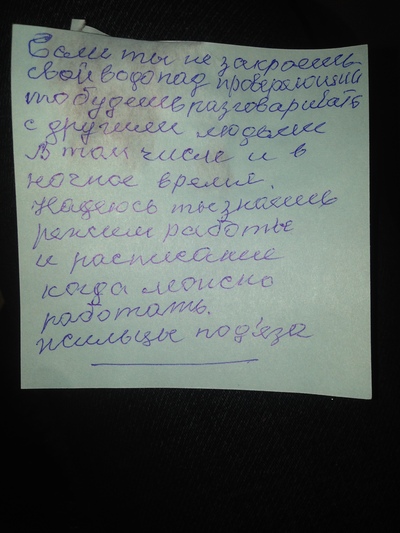 Если ты не закроешь
свой водопад проверяющий
то будешь разговаривать
с другими людьми
В том числе и в
ночное время.
Надеюсь ты знаешь
режим работы
и расписание
когда можно
работать.
жильцы под'яза